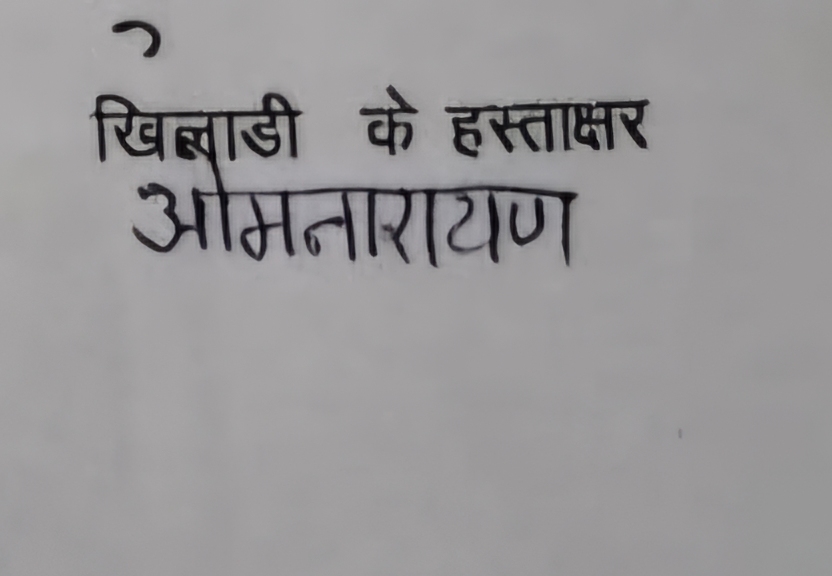 खिलाडी के हस्ताक्षर
ओमनारायण